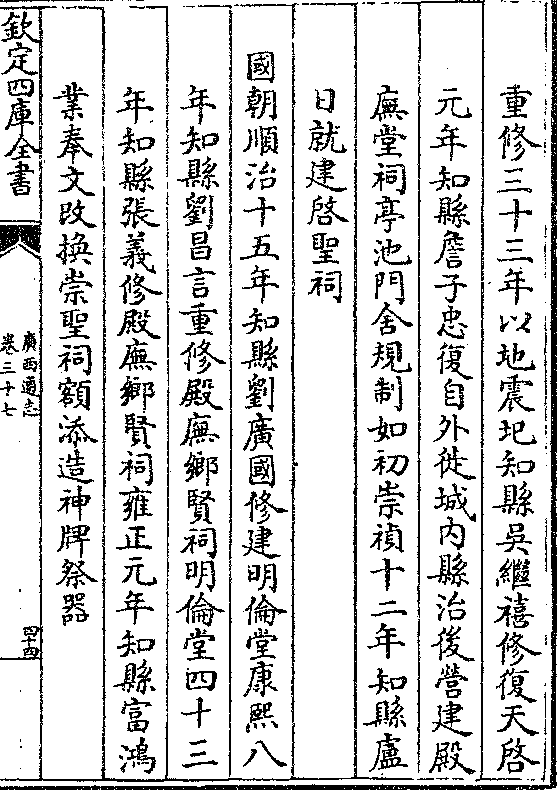 重修三十三年以地震圯知縣吳繼禧修復天啓
元年知縣詹子忠復自外徙城内縣治後營建殿
廡堂祠亭池門舍規制如初崇禎十二年知縣盧
日就建啓聖祠
國朝順治十五年知縣劉廣國修建明倫堂康熙八
年知縣劉昌言重修殿廡鄉賢祠明倫堂四十三
年知縣張義修殿廡鄉賢祠雍正元年知縣富鴻
業奉文改換崇聖祠額添造神牌祭器
欽定四庫全書
廣西通志
卷三十七
四十四